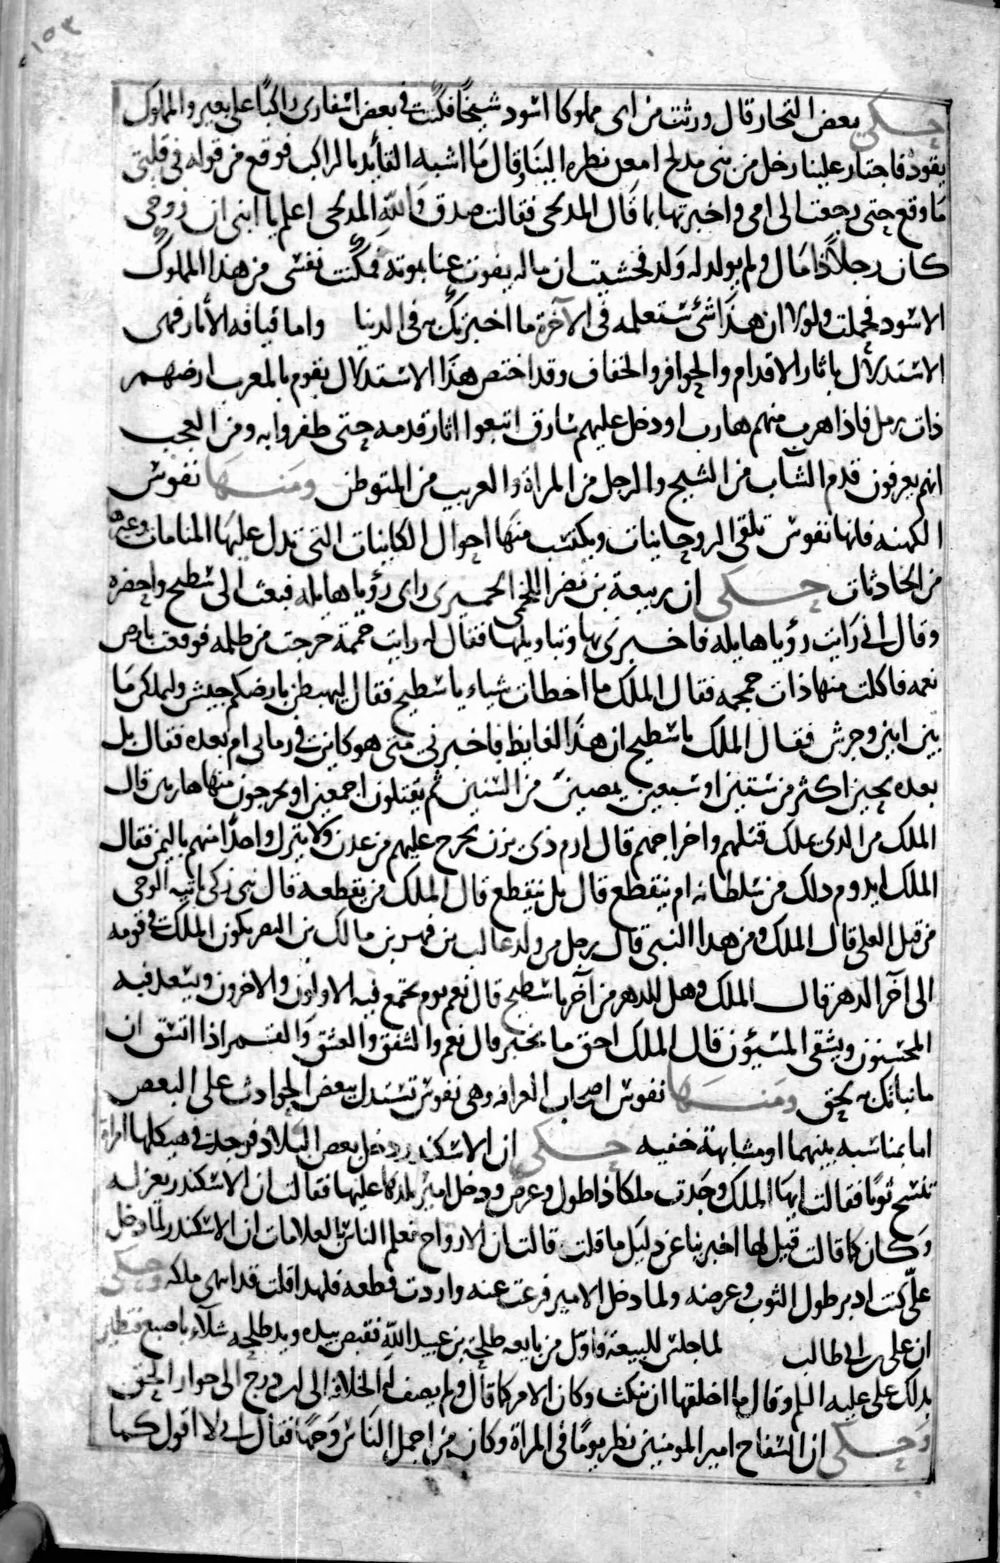 ١٥٣
حكى بعض التجار قال ورثت من ابى مملوكا اسود شيخا فكنت فى بعض اسفارى راكبا على بعير والمملوك
يقوده فاجتاز علينا رجل من بنى مدلج امعن نظره الينا وقال ما اشبه القائد بالراكب فوقع من قوله فى قلبى
ما وقع حتى رجعت الى امى واخبرتها بما قال المدلجى فقالت صدق والله المدلجى اعلم يا ابنى ان زوجى
كان رجلا ذا مال ولم يولد له ولد فخشيت ان ماله يفوت عنا بموته فمكنت نفسى من هذا المملوك
الاسود فحملت ولولا ان هذا شئ ستعلمه فى الآخرة ما اخبرتك به فى الدنيا واما قيافة الأثار فهى
الاستدلال باثار الاقدام والحوافر والخفاف وقد اختص هذا الاستدلال بقوم بالمغرب ارضهم
ذات رمل فاذا هرب منهم هارب او دخل عليهم سارق اتبعوا اثار قدمه حتى ظفروا به ومن العجب
انهم يعرفون قدم الشاب من الشيخ والرجل من المراة والغريب من المتوطن ومنها نفوس
الكهنه فانها نفوس تلقى الروحانيات وتكتسب منها احوال الكاينات التى تدل عليها المنامات وغيرها
من الحادثات حكى ان ربيعة بن نصر اللخمى الحميرى راى رؤيا هايله فبعث الى سطيح واحضره
وقال انى رايت رؤيا هايله فاخبرنى بها وبتاويلها فقال له رايت حممة خرجت من ظلمه فوقعت بارض
تهمه فاكلت منها ذات جمجمه فقال الملك ما اخطات شياء يا سطيح فقال ليهبطن بارضكم حبش وليملكن ما
بين ابين وجرش فقال الملك يا سطيح ان هذا لغايظ فاخبرنى متى هو كاين فى زمانى ام بعده فقال بل
بعده بحين اكثر من ستين او سبعين يمضين من السنين ثم يقتلون اجمعين او يخرجون منها هاربين قال
الملك من الذى يملك قتلهم واخراجهم قال ارم ذى يزن يخرج عليهم من عدن ولا يترك واحدا منهم باليمن فقال
الملك ايدوم ذلك من سلطانه ام ينقطع قال بل ينقطع قال الملك من يقطعه قال نبى زكى ياتيه الوحى
من قبل العلى قال الملك ومن هذا النبى قال رجل من ولد غالب بن فهر بن مالك بن النضر يكون الملك فى قومه
الى آخر الدهر قال الملك وهل للدهر من آخر يا سطيح قال نعم يوم يجتمع فيه الاولون والاخرون ويسعد فيه
المحسنون ويشقى المسيؤن قال الملك احق ما تخبر قال نعم والشفق والغسق والقمر اذا اتسق ان
ما نباتك به لحق ومنها نفوس اصحاب العرافه وهى نفوس تستدل ببعض الحوادث على البعض
اما بمناسبه بينهما او مشابهة خفيه حكى ان الاسكندر دخل بعض البلاد فوجد فى هيكلها امراة
تنسج ثوبا فقالت ايها الملك وجدت ملكا ذا طول وعرض ودخل امير بلدها عليها فقالت ان الاسكندر يعزله
وكان كما قالت فقيل لها اخبرينا عن دليل ما قلت قالت ان الارواح تعلم الناس بالعلامات ان الاسكندر لما دخل
على كنت ادبر طول الثوب وعرضه ولما دخل الامير فرغت عنه واردت قطعه فلهذا قلت قد انتهى ملكه وحكى
ان على بن ابى طالب لما جلس للبيعة فاول من بايعه طلحة بن عبيد الله فقبض بيده ويد طلحه شلاء باصبع فتطير
بذلك على عليه السلم وقال ما اخلقها ان تنكث وكان الامر كما قال ولم يصف له الخلافة الى ان درج الى جوار الحق
وحكى ان السفاح امير المومنين نظر يوما فى المراة وكان من اجمل الناس وجها فقال انى لا اقول كما